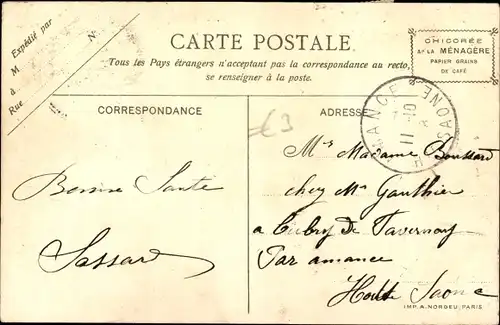 Expédié par
M
à
Rue
N°
CARTE POSTALE
Tous les Pays étrangers n'acceptent pas la correspondance au recto,
se renseigner à la poste.
CHICORÉE
A LA MÉNAGÈRE
PAPIER GRAINS
DE CAFÉ
CORRESPONDANCE
ADRESSE
€3
FRANCE
11-10
SAONE
Bonne Santé
Sassard
Mr Madame Boussard
chez Mr Gauthier
a de Tavernay
Par amance
Haute Saone
IMP. A. NORGEU, PARIS